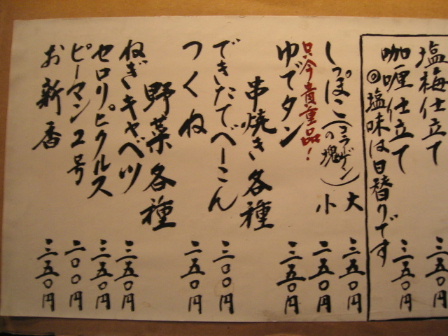 塩梅仕立て 三五〇円
咖喱仕立て 三五〇円
◎塩味は日替りです
しっぽこ(コラーゲンの塊) 大 三五〇円
小 二五〇円
只今貴重品!
ゆでタン 三五〇円
串焼き各種
できたてべーこん 三〇〇円
つくね 二五〇円
野菜各種
ねぎキャベツ 三五〇円
セロリピクルス 三五〇円
ピーマン2号 二〇〇円
お新香 三五〇円